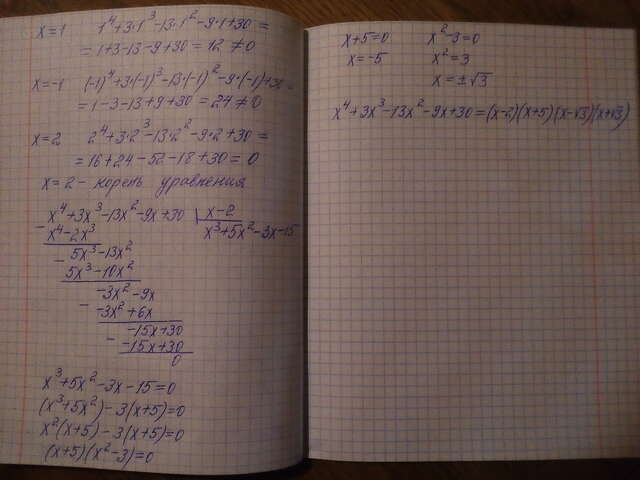 x=1 1⁴+3·1³-13·1²-9·1+30=
=1+3-13-9+30=12≠0
x=-1 (-1)⁴+3·(-1)³-13·(-1)²-9·(-1)+30=
=1-3-13+9+30=24≠0
x=2 2⁴+3·2³-13·2²-9·2+30=
=16+24-52-18+30=0
x=2 - корень уравнения
x⁴+3x³-13x²-9x+30 | x-2
- x⁴-2x³ x³+5x²-3x-15
- 5x³-13x²
5x³-10x²
- -3x²-9x
-3x²+6x
- -15x+30
-15x+30
0
x³+5x²-3x-15=0
(x³+5x²)-3(x+5)=0
x²(x+5)-3(x+5)=0
(x+5)(x²-3)=0
x+5=0 x²-3=0
x=-5 x²=3
x=±√3
x⁴+3x³-13x²-9x+30=(x-2)(x+5)(x-√3)(x+√3)